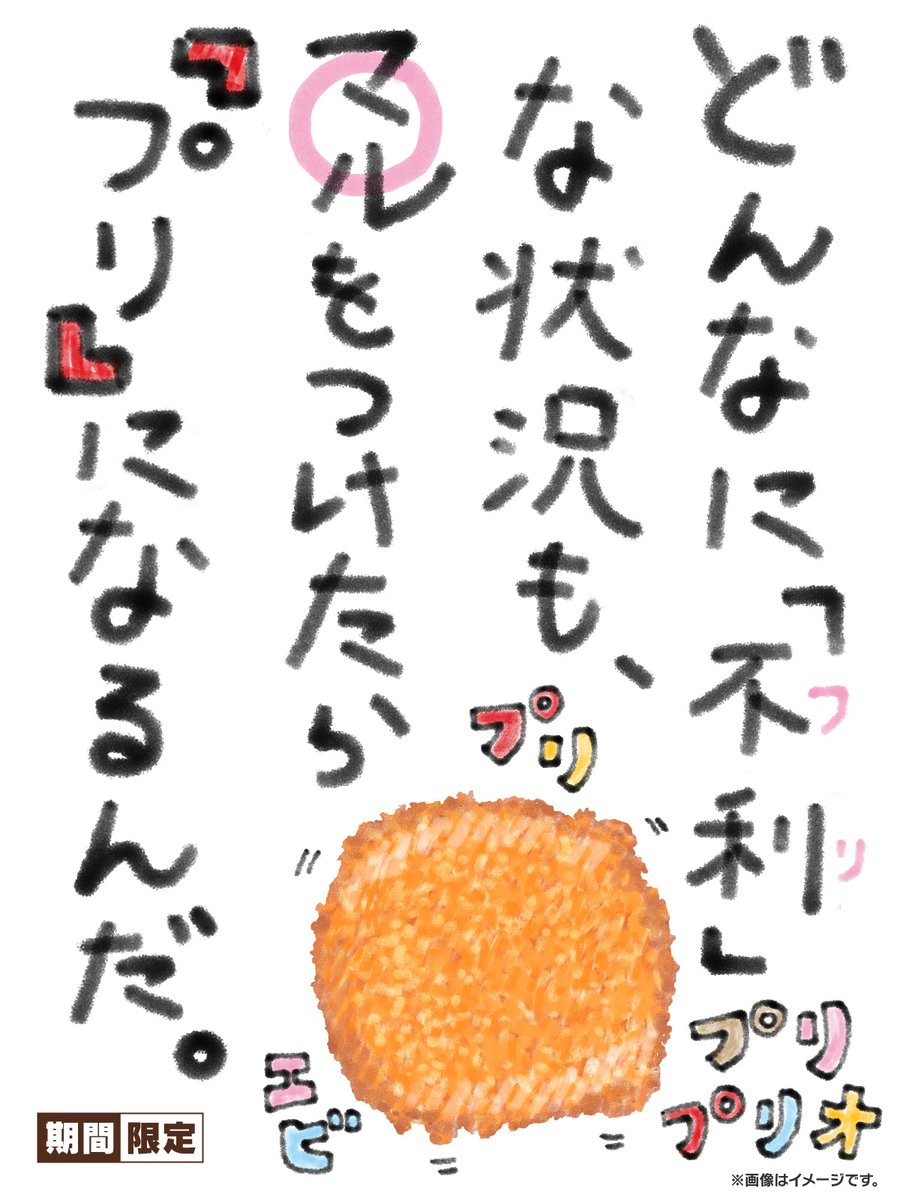 どんなに「不利」
フリ
な状況も、
マルをつけたら
『プリ』になるんだ。
プリ
エビ
プリプリオ
プリ
期間限定
※画像はイメージです。